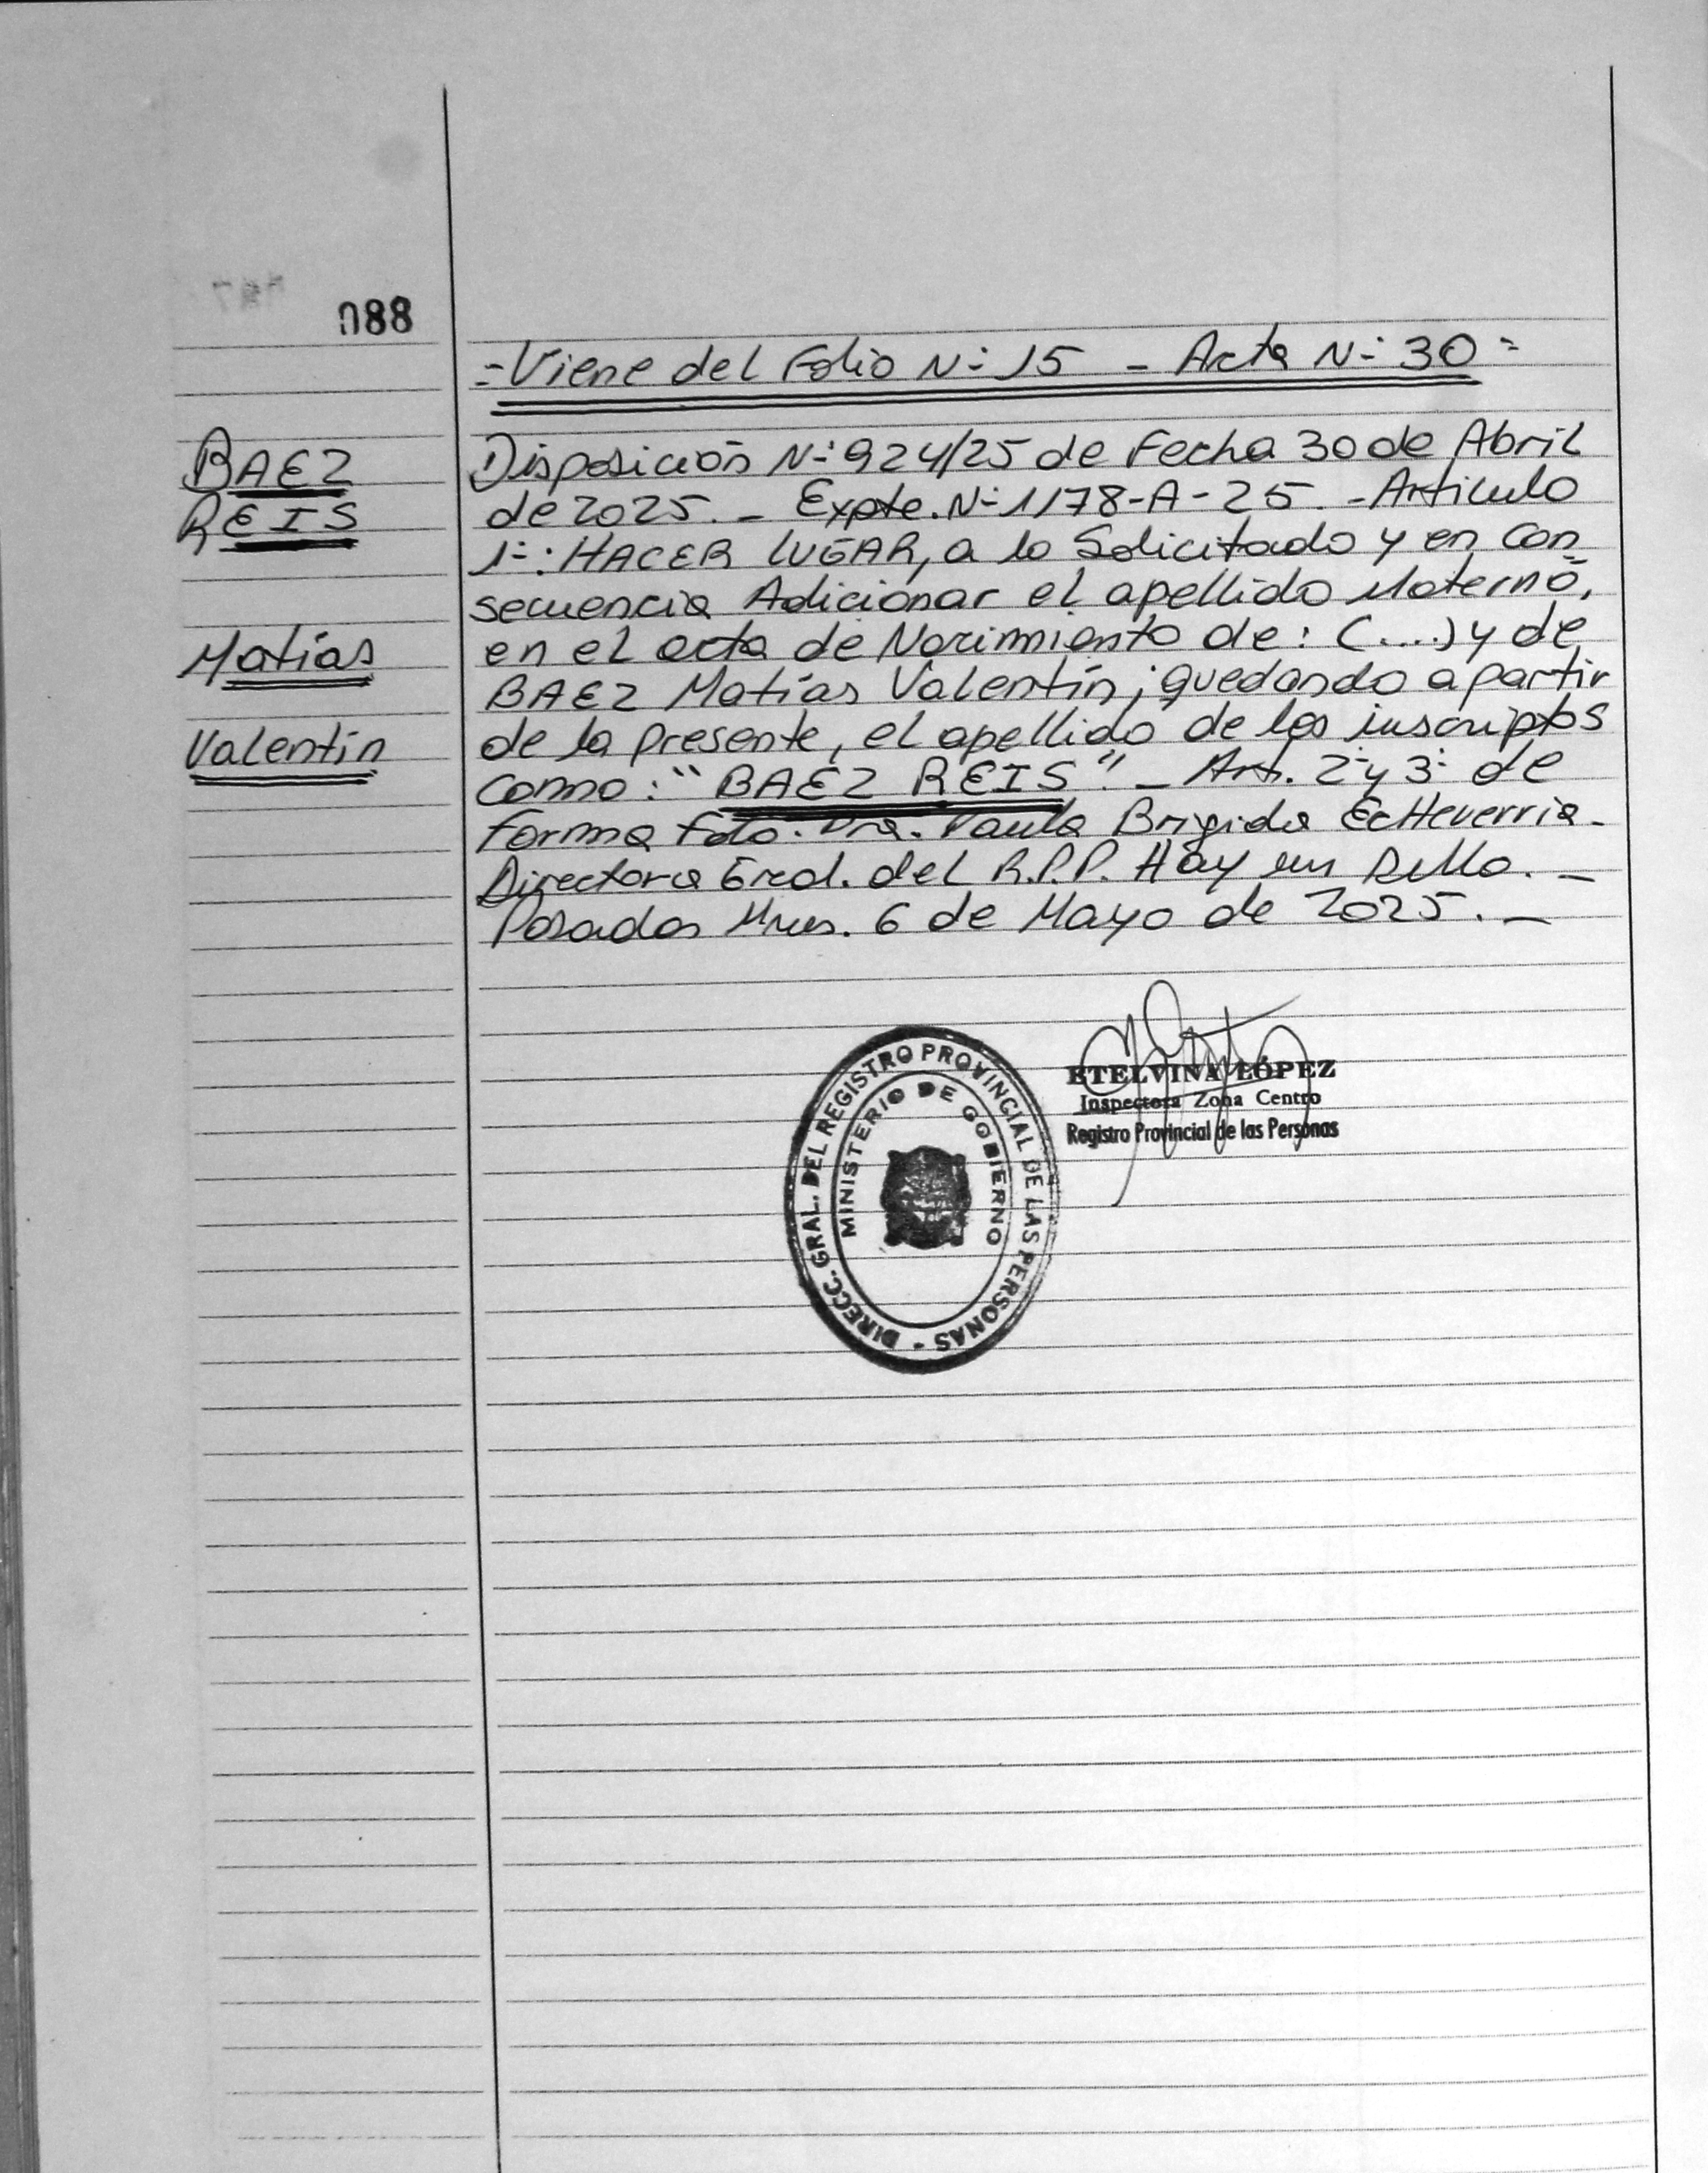 088
=Viene del Folio N: 15 - Acta N: 30=
BAEZ
REIS
Matías
Valentín
Disposición N: 924/25 de Fecha 30 de Abril
de 2025. - Expte. N: 1178-A-25. - Articulo
1-: HACER LUGAR, a lo Solicitado y en Con_
secuencia Adicionar el apellido Materno,
en el acta de Nacimiento de: (....) y de
BAEZ Matías Valentín; quedando a partir
de la presente, el apellido de los inscriptos
como: "BAEZ REIS". - Art. 2 y 3 de
forma Fdo. Dra. Paula Brigida EcHeverria-
Directora Gral. del R.P.P. Hay un sello. -
Posadas Mnes. 6 de Mayo de 2025. -
DIRECC. GRAL. DEL REGISTRO PROVINCIAL DE LAS PERSONAS -
MINISTERIO DE GOBIERNO
ETELVINA LÓPEZ
Inspectora Zona Centro
Registro Provincial de las Personas